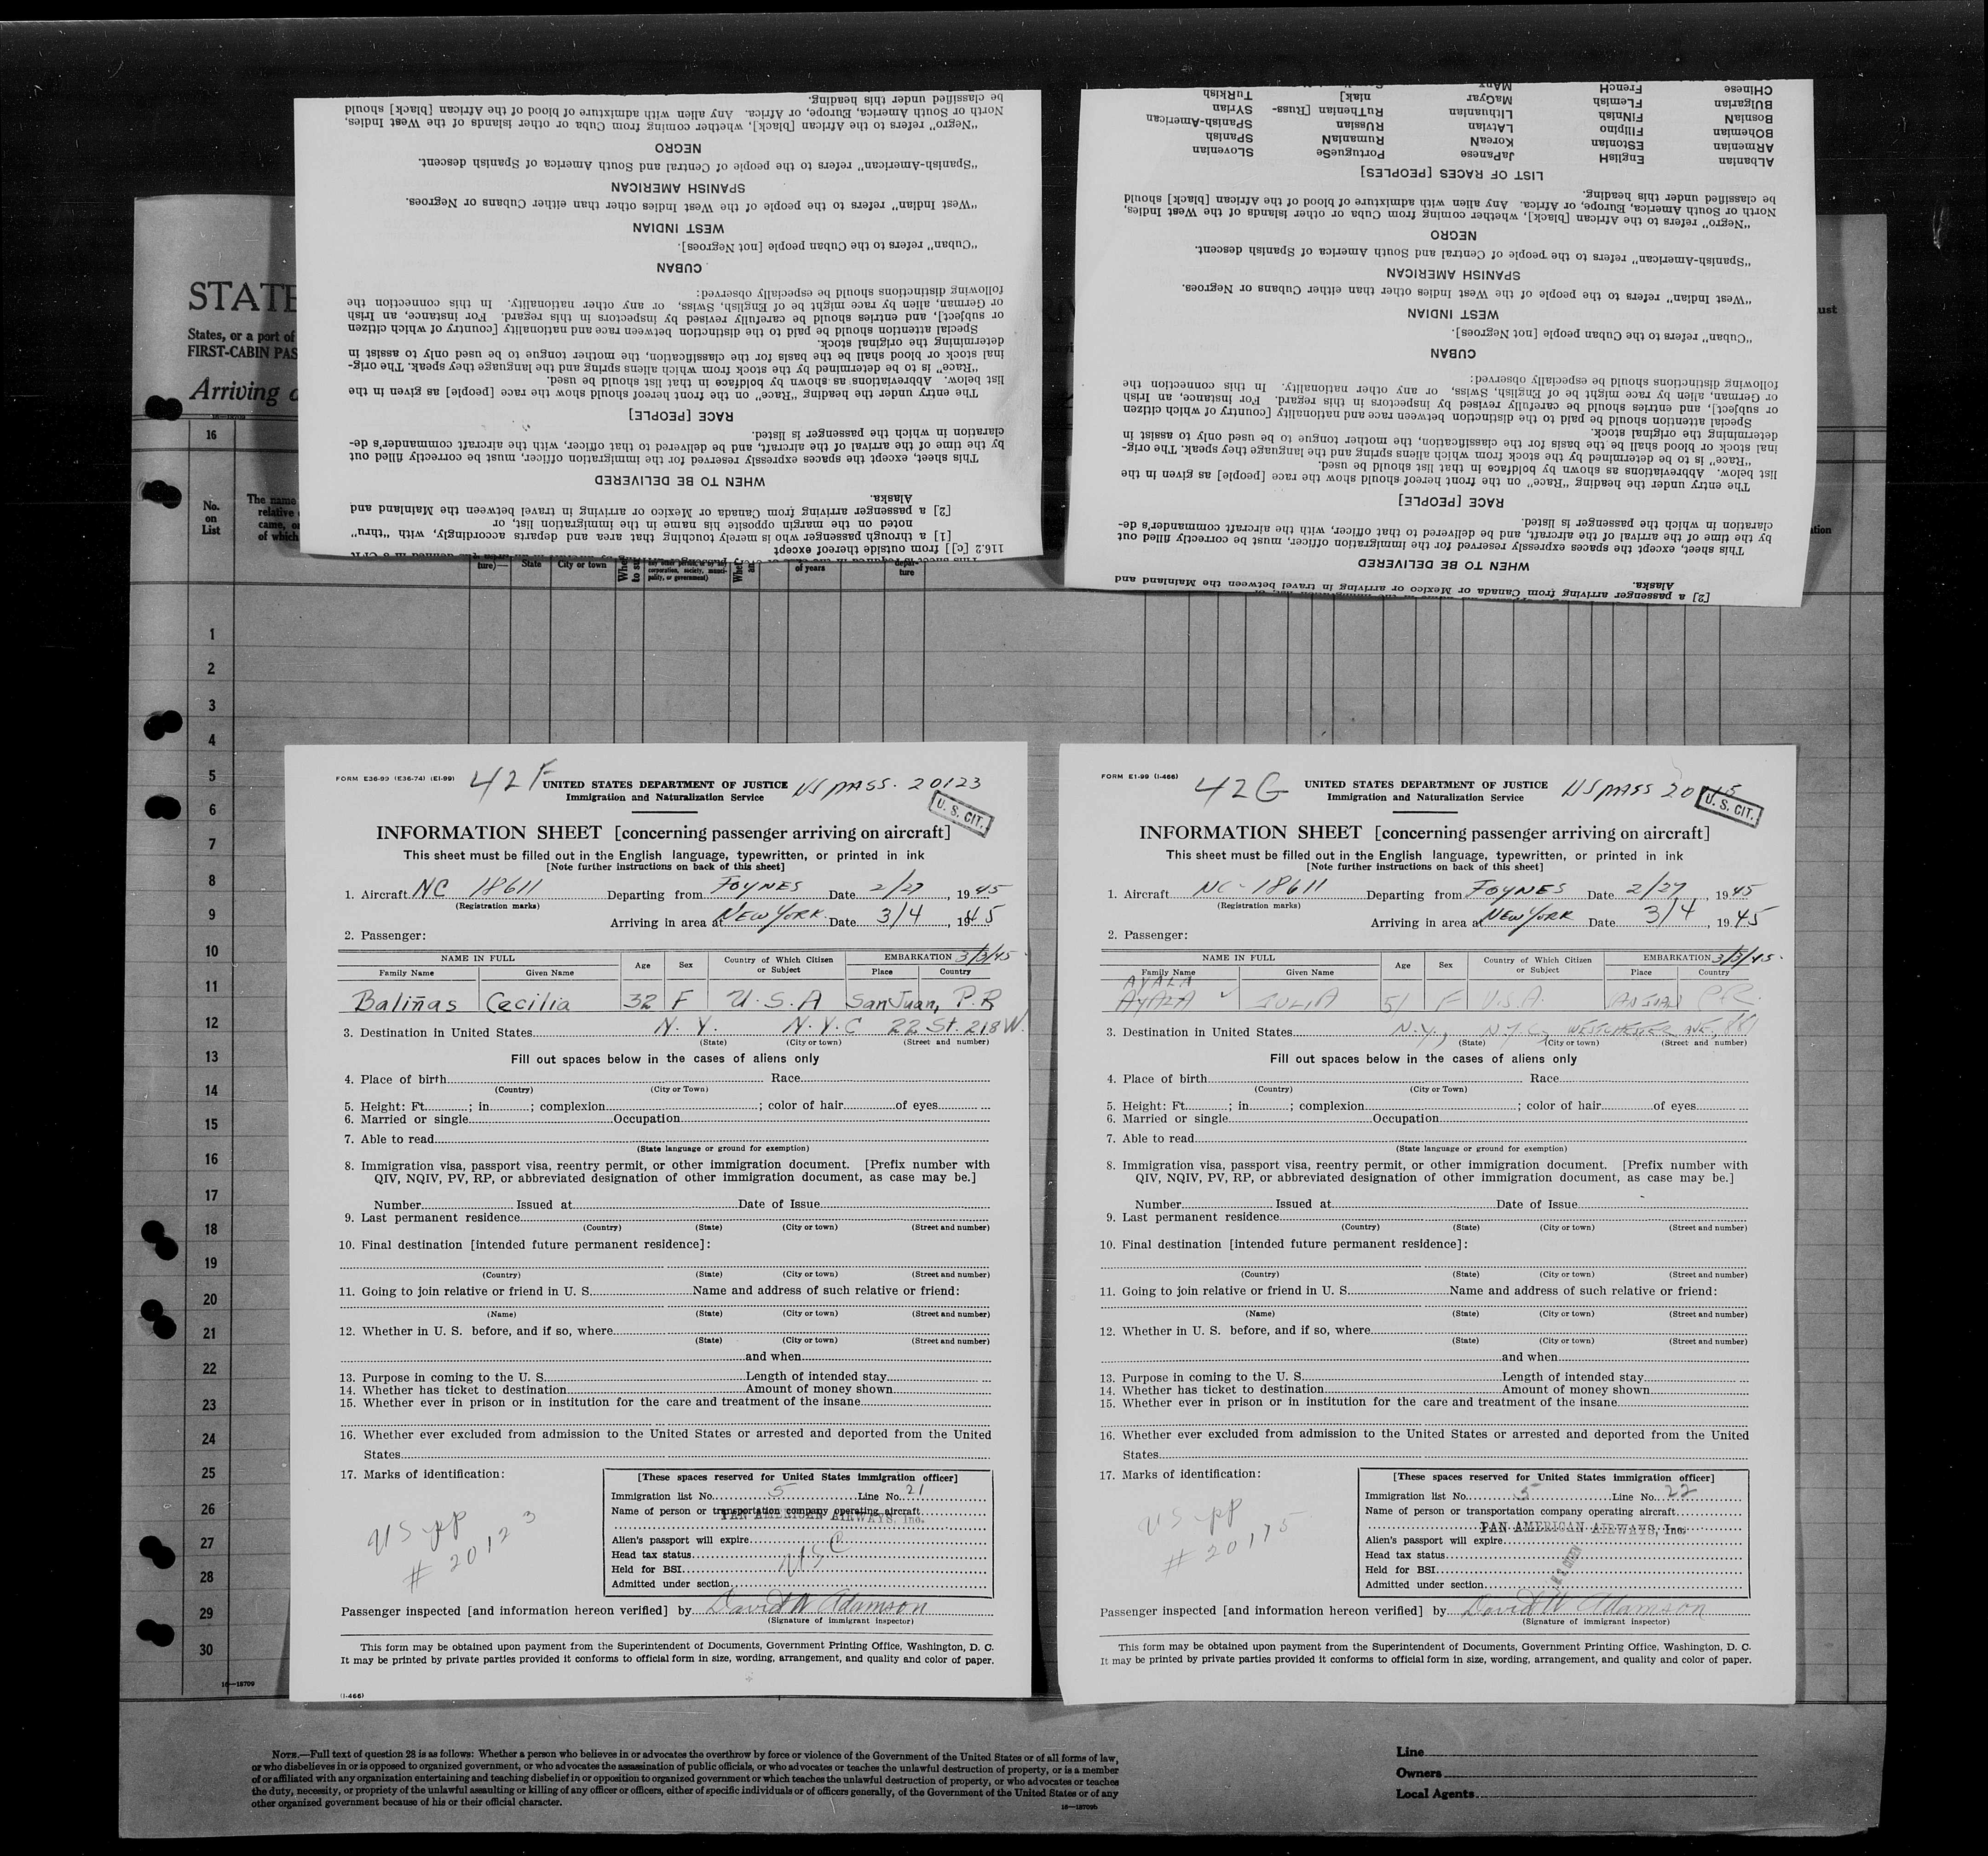 be classified under this heading.
North or South America, Europe, or Africa. Any alien with admixture of blood of the African [black] should
"Negro" refers to the African [black], whether coming from Cuba or other islands of the West Indies,
NEGRO
"Spanish-American" refers to the people of Central and South America of Spanish descent.
SPANISH AMERICAN
"West Indian" refers to the people of the West Indies other than either Cubans or Negroes.
WEST INDIAN
"Cuban" refers to the Cuban people [not Negroes].
CUBAN
following distinctions should be especially observed:
or German, alien by race might be of English, Swiss, or any other nationality. In this connection the
or subject], and entries should be carefully revised by inspectors in this regard. For instance, an Irish
Special attention should be paid to the distinction between race and nationality [country of which citizen
determining the original stock.
inal stock or blood shall be the basis for the classification, the mother tongue to be used only to assist in
"Race" is to be determined by the stock from which aliens spring and the language they speak. The orig-
list below. Abbreviations as shown by boldface in that list should be used.
The entry under the heading "Race" on the front hereof should show the race [people] as given in the
RACE [PEOPLE]
claration in which the passenger is listed.
by the time of the arrival of the aircraft, and be delivered to that officer, with the aircraft commander's de-
This sheet, except the spaces expressly reserved for the immigration officer, must be correctly filled out
WHEN TO BE DELIVERED
Alaska.
[2] a passenger arriving from Canada or Mexico or arriving in travel between the Mainland and
noted on the margin opposite his name in the immigration list, or
[1] a through passenger who is merely touching that area and departs accordingly, with "thru"
116.2 [c]] from outside thereof except
CHinese FrencH ManX
BUlgarian FLemish MaGyar niak] TurKish
BosniaN FINnish Lithuanian RuThenian [Russ- SYrian
BOHemian Filipino LAtvian RUssian SPanish-American
ARmenian EStonian KoreaN RumaniaN SPanish
ALbanian EnglisH JaPanese PortugueSe SLOvenian
LIST OF RACES [PEOPLES]
be classified under this heading.
North or South America, Europe, or Africa. Any alien with admixture of blood of the African [black] should
"Negro" refers to the African [black], whether coming from Cuba or other islands of the West Indies,
NEGRO
"Spanish-American" refers to the people of Central and South America of Spanish descent.
SPANISH AMERICAN
"West Indian" refers to the people of the West Indies other than either Cubans or Negroes.
WEST INDIAN
"Cuban" refers to the Cuban people [not Negroes].
CUBAN
following distinctions should be especially observed:
or German, alien by race might be of English, Swiss, or any other nationality. In this connection the
or subject], and entries should be carefully revised by inspectors in this regard. For instance, an Irish
Special attention should be paid to the distinction between race and nationality [country of which citizen
determining the original stock.
inal stock or blood shall be the basis for the classification, the mother tongue to be used only to assist in
"Race" is to be determined by the stock from which aliens spring and the language they speak. The orig-
list below. Abbreviations as shown by boldface in that list should be used.
The entry under the heading "Race" on the front hereof should show the race [people] as given in the
RACE [PEOPLE]
claration in which the passenger is listed.
by the time of the arrival of the aircraft, and be delivered to that officer, with the aircraft commander's de-
This sheet, except the spaces expressly reserved for the immigration officer, must be correctly filled out
WHEN TO BE DELIVERED
Alaska.
[2] a passenger arriving from Canada or Mexico or arriving in travel between the Mainland and
STATE
States, or a part of
FIRST-CABIN PAS
Arriving
16
No. on List
The name
relative
came, o
of which
ture)— State City or town
corporation, society, munici-
pality, or government)
of years
depar-
ture
1
2
3
4
5
6
7
8
9
10
11
12
13
14
15
16
17
18
19
20
21
22
23
24
25
26
27
28
29
30
16—18709
FORM E36-99 (E36-74) (E1-99)
42F
UNITED STATES DEPARTMENT OF JUSTICE
US PASS. 20123
Immigration and Naturalization Service
U. S. CIT.
INFORMATION SHEET [concerning passenger arriving on aircraft]
This sheet must be filled out in the English language, typewritten, or printed in ink
[Note further instructions on back of this sheet]
1. Aircraft NC 18611 Departing from FOYNES Date 2/27, 1945
(Registration marks)
Arriving in area at NEW YORK Date 3/4, 1945
2. Passenger:
NAME IN FULL Age Sex Country of Which Citizen or Subject EMBARKATION 3/3/45
Family Name Given Name Place Country
Baliñas Cecilia 32 F U.S.A San Juan, P.R
3. Destination in United States N.Y. N.Y.C 22 St. 218 W.
(State) (City or town) (Street and number)
Fill out spaces below in the cases of aliens only
4. Place of birth Race
(Country) (City or Town)
5. Height: Ft. ; in ; complexion ; color of hair of eyes
6. Married or single Occupation
7. Able to read
(State language or ground for exemption)
8. Immigration visa, passport visa, reentry permit, or other immigration document. [Prefix number with
QIV, NQIV, PV, RP, or abbreviated designation of other immigration document, as case may be.]
Number Issued at Date of Issue
9. Last permanent residence
(Country) (State) (City or town) (Street and number)
10. Final destination [intended future permanent residence]:
(Country) (State) (City or town) (Street and number)
11. Going to join relative or friend in U. S. Name and address of such relative or friend:
(Name) (State) (City or town) (Street and number)
12. Whether in U. S. before, and if so, where
(State) (City or town) (Street and number)
and when
13. Purpose in coming to the U. S. Length of intended stay
14. Whether has ticket to destination Amount of money shown
15. Whether ever in prison or in institution for the care and treatment of the insane
16. Whether ever excluded from admission to the United States or arrested and deported from the United
States
17. Marks of identification:
US pp
# 20123
[These spaces reserved for United States immigration officer]
Immigration list No. 5 Line No. 21
Name of person or transportation company operating aircraft
PAN AMERICAN AIRWAYS, Inc.
Alien's passport will expire
Head tax status USC
Held for BSI
Admitted under section
Passenger inspected [and information hereon verified] by David W Adamson
(Signature of immigrant inspector)
This form may be obtained upon payment from the Superintendent of Documents, Government Printing Office, Washington, D. C.
It may be printed by private parties provided it conforms to official form in size, wording, arrangement, and quality and color of paper.
(I-466)
FORM E1-99 (I-466)
42G
UNITED STATES DEPARTMENT OF JUSTICE
US PASS 20
Immigration and Naturalization Service
U. S. CIT.
INFORMATION SHEET [concerning passenger arriving on aircraft]
This sheet must be filled out in the English language, typewritten, or printed in ink
[Note further instructions on back of this sheet]
1. Aircraft NC-18611 Departing from FOYNES Date 2/27, 1945
(Registration marks)
Arriving in area at NEW YORK Date 3/4, 1945
2. Passenger:
NAME IN FULL Age Sex Country of Which Citizen or Subject EMBARKATION 3/3/45
Family Name Given Name Place Country
AYALA
AYALA JULIA 51 F U.S.A. SAN JUAN P.R.
3. Destination in United States N.Y., N.Y.C, WESTCHESTER AVE., 881
(State) (City or town) (Street and number)
Fill out spaces below in the cases of aliens only
4. Place of birth Race
(Country) (City or Town)
5. Height: Ft. ; in ; complexion ; color of hair of eyes
6. Married or single Occupation
7. Able to read
(State language or ground for exemption)
8. Immigration visa, passport visa, reentry permit, or other immigration document. [Prefix number with
QIV, NQIV, PV, RP, or abbreviated designation of other immigration document, as case may be.]
Number Issued at Date of Issue
9. Last permanent residence
(Country) (State) (City or town) (Street and number)
10. Final destination [intended future permanent residence]:
(Country) (State) (City or town) (Street and number)
11. Going to join relative or friend in U. S. Name and address of such relative or friend:
(Name) (State) (City or town) (Street and number)
12. Whether in U. S. before, and if so, where
(State) (City or town) (Street and number)
and when
13. Purpose in coming to the U. S. Length of intended stay
14. Whether has ticket to destination Amount of money shown
15. Whether ever in prison or in institution for the care and treatment of the insane
16. Whether ever excluded from admission to the United States or arrested and deported from the United
States
17. Marks of identification:
US pp
# 20115
[These spaces reserved for United States immigration officer]
Immigration list No. 5 Line No. 22
Name of person or transportation company operating aircraft
PAN AMERICAN AIRWAYS, Inc.
Alien's passport will expire
Head tax status
Held for BSI
Admitted under section
U S CITIZEN
Passenger inspected [and information hereon verified] by David W Adamson
(Signature of immigrant inspector)
This form may be obtained upon payment from the Superintendent of Documents, Government Printing Office, Washington, D. C.
It may be printed by private parties provided it conforms to official form in size, wording, arrangement, and quality and color of paper.
NOTE.—Full text of question 28 is as follows: Whether a person who believes in or advocates the overthrow by force or violence of the Government of the United States or of all forms of law,
or who disbelieves in or is opposed to organized government, or who advocates the assassination of public officials, or who advocates or teaches the unlawful destruction of property, or is a member
of or affiliated with any organization entertaining and teaching disbelief in or opposition to organized government or which teaches the unlawful destruction of property, or who advocates or teaches
the duty, necessity, or propriety of the unlawful assaulting or killing of any officer or officers, either of specific individuals or of officers generally, of the Government of the United States or of any
other organized government because of his or their official character.
16—18709b
Line
Owners
Local Agents